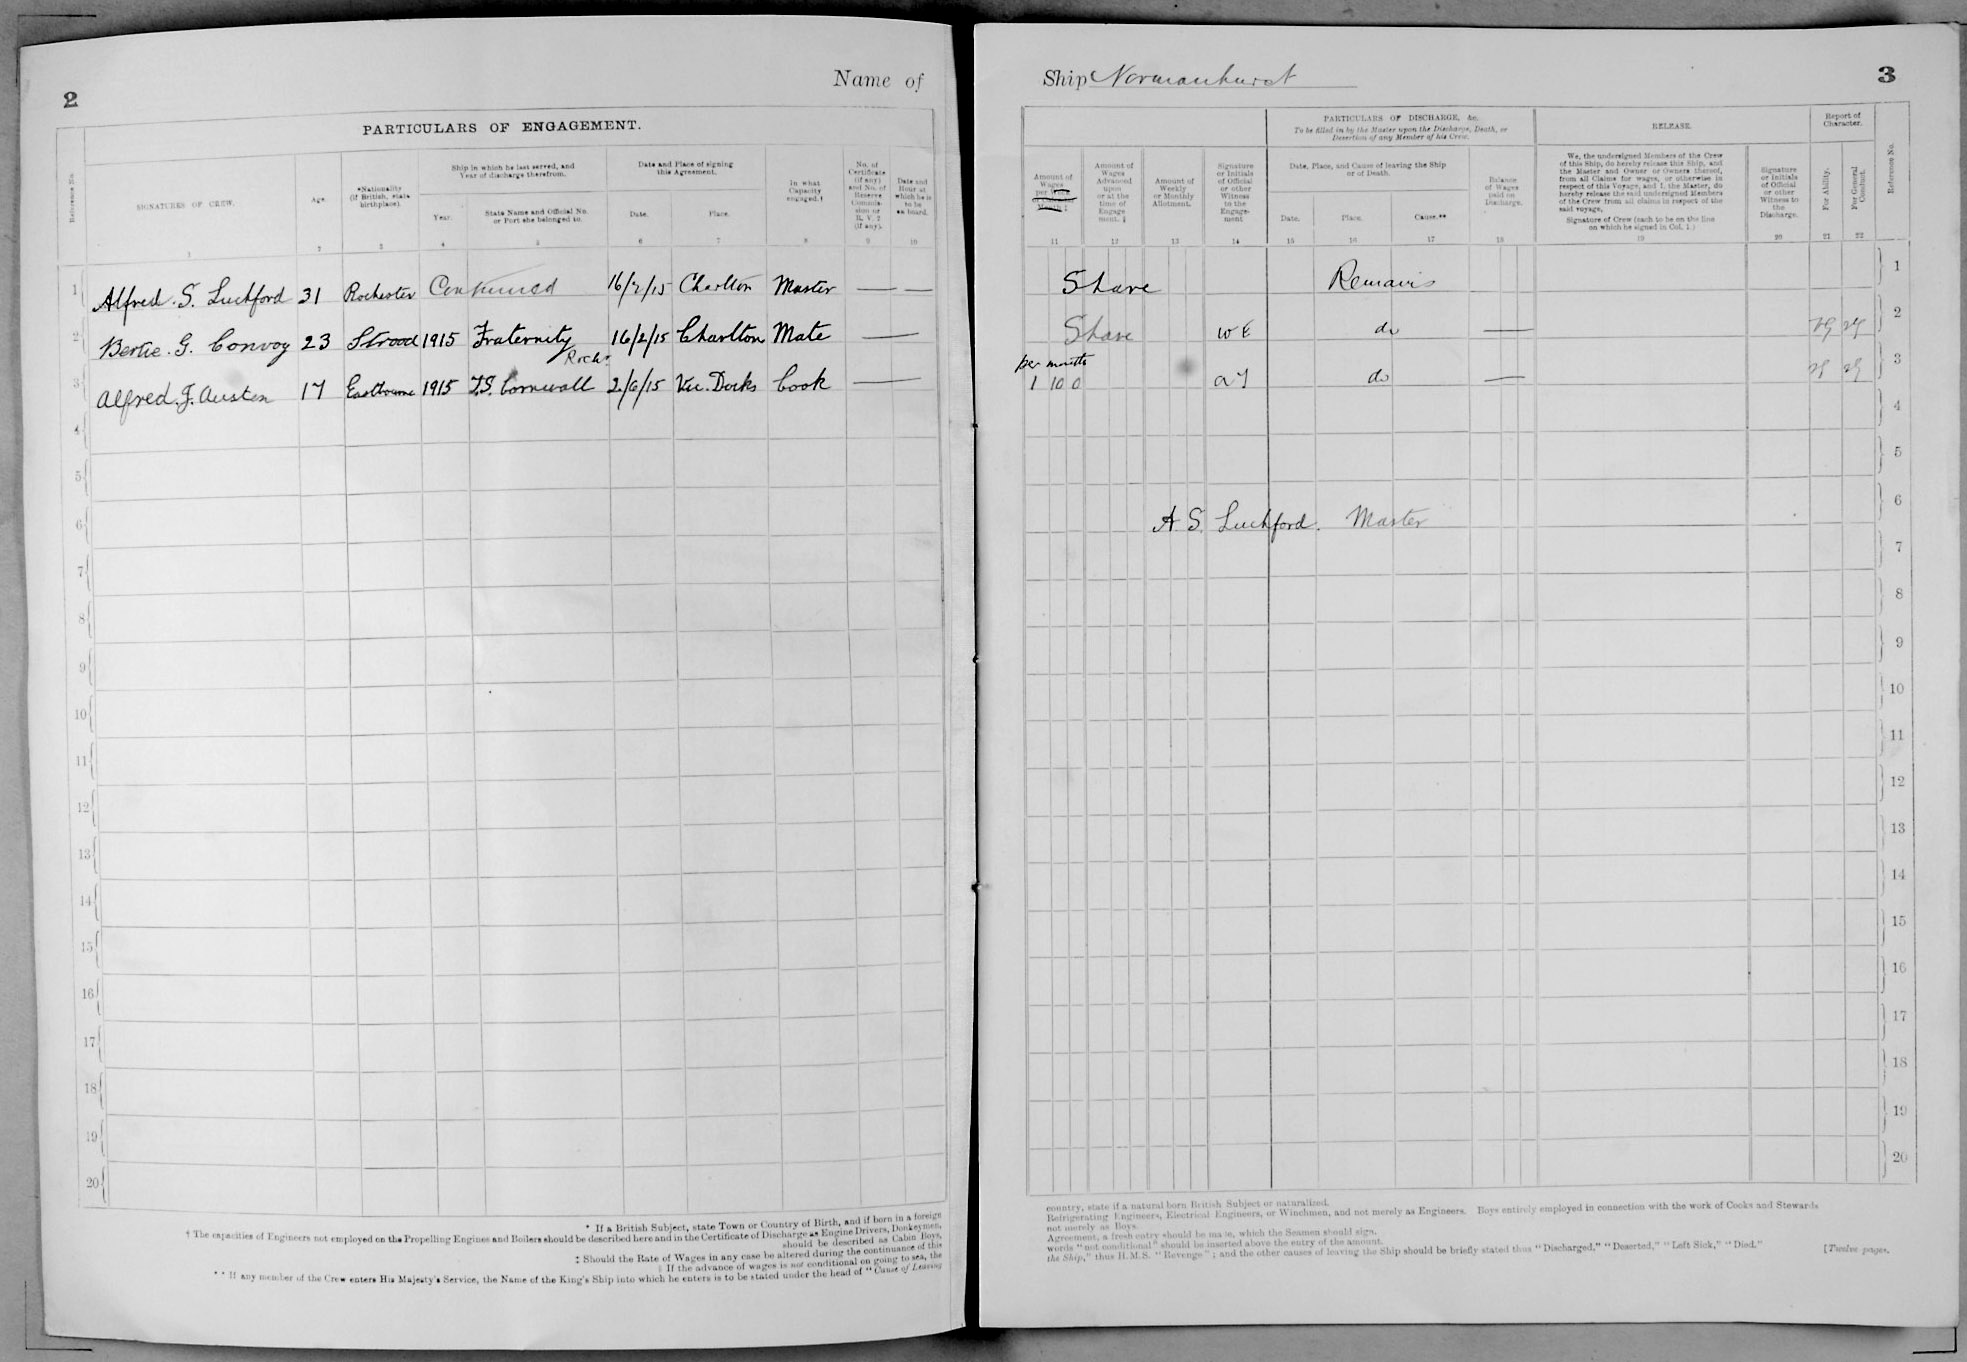 2
Name of
PARTICULARS OF ENGAGEMENT.
Reference No.
SIGNATURES OF CREW.
Age.
*Nationality
(if British, state
birthplace).
Ship in which he last served, and
Year of discharge therefrom.
Year.
State Name and Official No.
or Port she belonged to.
Date and Place of signing
this Agreement.
Date.
Place.
In what
Capacity
engaged.†
No. of
Certificate
(if any)
and No. of
Reserve
Commis-
sion or
R. V. 2
(if any).
Date and
Hour at
which he is
to be
on board.
1 2 3 4 5 6 7 8 9 10
1 Alfred. S. Luckford 31 Rochester Continued 16/2/15 Charlton Master — —
2 Bertie. G. Convoy 23 Strood 1915 Fraternity 16/2/15 Charlton Mate —
Rochr
3 Alfred. J. Austen 17 Eastbourne 1915 T.S. Cornwall 2/6/15 Vic. Docks Cook —
4
5
6
7
8
9
10
11
12
13
14
15
16
17
18
19
20
* If a British Subject, state Town or Country of Birth, and if born in a foreign
† The capacities of Engineers not employed on the Propelling Engines and Boilers should be described here and in the Certificate of Discharge as Engine Drivers, Donkeymen,
should be described as Cabin Boys,
‡ Should the Rate of Wages in any case be altered during the continuance of this
| If the advance of wages is not conditional on going to sea, the
** If any member of the Crew enters His Majesty's Service, the Name of the King's Ship into which he enters is to be stated under the head of "Cause of Leaving
Ship Normanhurst
3
Amount of
Wages
per
Month ‡
Amount of
Wages
Advanced
upon
or at the
time of
Engage
ment. ‖
Amount of
Weekly
or Monthly
Allotment.
Signature
or Initials
of Official
or other
Witness
to the
Engage-
ment
PARTICULARS OF DISCHARGE, &c.
To be filled in by the Master upon the Discharge, Death, or
Desertion of any Member of his Crew.
Date, Place, and Cause of leaving the Ship
or of Death.
Date.
Place.
Cause.**
Balance
of Wages
paid on
Discharge.
RELEASE.
We, the undersigned Members of the Crew
of this Ship, do hereby release this Ship, and
the Master and Owner or Owners thereof,
from all Claims for wages, or otherwise in
respect of this Voyage, and I, the Master, do
hereby release the said undersigned Members
of the Crew from all claims in respect of the
said voyage,
Signature of Crew (each to be on the line
on which he signed in Col. 1.)
Signature
or Initials
of Official
or other
Witness to
the
Discharge.
Report of
Character.
For Ability.
For General
Conduct.
Reference No.
11 12 13 14 15 16 17 18 19 20 21 22
Share Remains 1
Share W E do — VG VG 2
per month
1 10 0 a J do — VG VG 3
4
5
6
A. S. Luckford. Master
7
8
9
10
11
12
13
14
15
16
17
18
19
20
country, state if a natural born British Subject or naturalized.
Refrigerating Engineers, Electrical Engineers, or Winchmen, and not merely as Engineers. Boys entirely employed in connection with the work of Cooks and Stewards
not merely as Boys.
Agreement, a fresh entry should be made, which the Seamen should sign.
words "not conditional" should be inserted above the entry of the amount.
the Ship," thus H.M.S. "Revenge"; and the other causes of leaving the Ship should be briefly stated thus "Discharged," "Deserted," "Left Sick," "Died."
[Twelve pages.